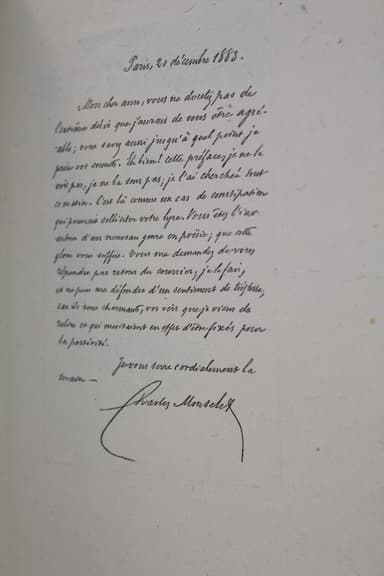 Paris, 20 décembre 1883.
Mon cher ami, vous ne doutez pas de
l'extrême désir que j'aurais de vous être agré-
able; vous savez aussi jusqu'à quel point je
prise vos sonnets. Eh bien! cette préface, je ne la
vois pas, je ne la sens pas; je l'ai cherchée tout
ce matin. C'est là comme un cas de constipation
qui pourrait solliciter votre lyre. Vous êtes l'inv-
enteur d'un nouveau genre en poésie; que cette
gloire vous suffise. Vous me demandez de vous
répondre par retour du courrier; je le fais,
et ne puis me défendre d'un sentiment de tristesse,
car ils sont charmants, vos vers que je viens de
relire et qui méritaient en effet d'être fixés pour
la postérité.
Je vous serre cordialement la
main —
Charles Monselet